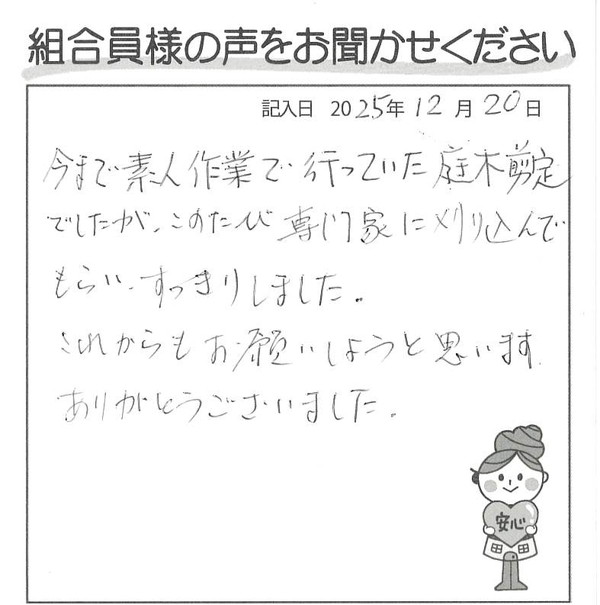 組合員様の声をお聞かせください
記入日 2025年12月20日
今まで素人作業で行っていた庭木剪定
でしたが、このたび専門家に刈り込んで
もらい、すっきりしました。
これからもお願いしようと思います。
ありがとうございました。
安心